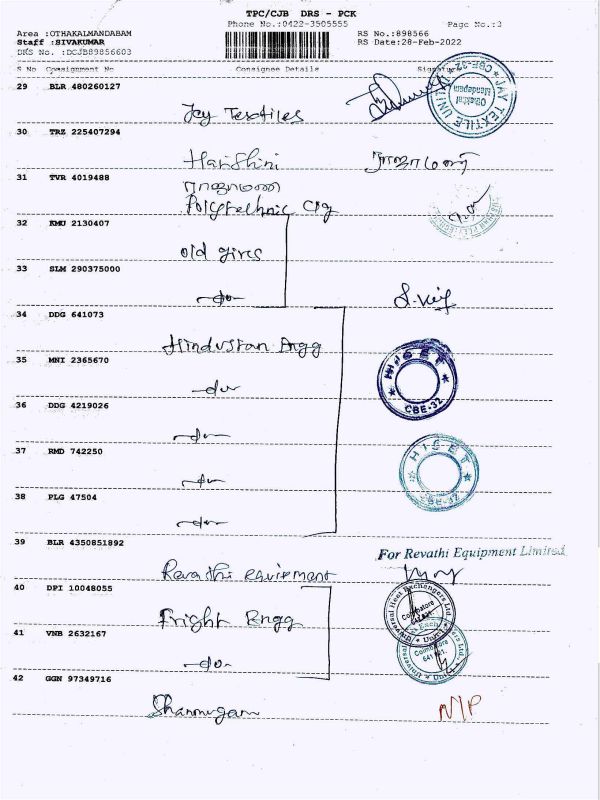 TPC/CJB DRS - PCK
Phone No.:0422-3505555 Page No.:3
Area :OTHAKALMANDABAM RS No.:898566
Staff :SIVAKUMAR RS Date:28-Feb-2022
DRS No. :DCJB89856603
S No Consignment No Consignee Details Signature
29 BLR 480260127
Jay Textiles
JAY TEXTILE UNIT
Othakkal Mandapam
CBE-32
30 TRZ 225407294
Harshini ராஜாமணி
31 TVR 4019488
ராஜாமணி
Polytechnic Clg
32 KMU 2130407
old girls
33 SLM 290375000
-do-
34 DDG 641073
Hindustan Engg
35 MNI 2365670
-do-
HISET
CBE-32
36 DDG 4219026
-do-
37 RMD 742250
-do-
HISET
38 PLG 47504
-do-
39 BLR 4350851892
For Revathi Equipment Limited
Revathi Equipment
40 DPI 10048055
Fright Engg
Universal Heat Exchangers Ltd.
Coimbatore
41 VNB 2632167
-do-
Coimbatore
641 021.
42 GGN 97349716
Shanmugam N/P